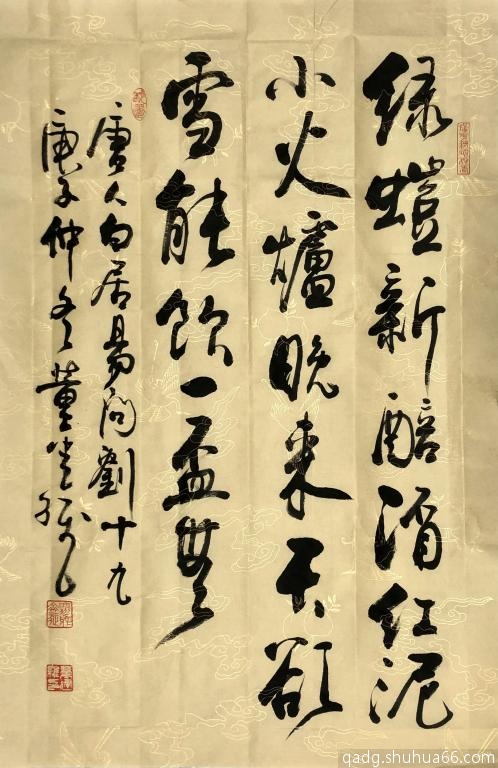 绿螘新醅酒红泥
小火爐晚来天欲
雪能飲一盃無
唐人白居易问劉十九
庚子仲冬董
qadg.shuhua66.com